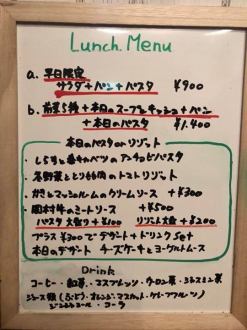 Lunch Menu
a. 平日限定
サラダ+パン+パスタ ¥900
b. 前菜5種+本日のスープとキッシュ+パン
+本日のパスタ ¥1,400
本日のパスタ or リゾット
・しらすと春キャベツのアンチョビパスタ
・冬野菜ととり肉のトマトリゾット
・カキとマッシュルームのクリームソース +¥300
・国本村牛のミートソース +¥500
パスタ大盛り+¥100 リゾット大盛+¥200
プラス¥300でデザート+ドリンクset
本日のデザート チーズケーキとヨーグルトムース
Drink
コーヒー・紅茶・
ジュース類(ぶどう・オレンジ・マスカット・グレープフルーツ)
ジンジャエール・コーラ